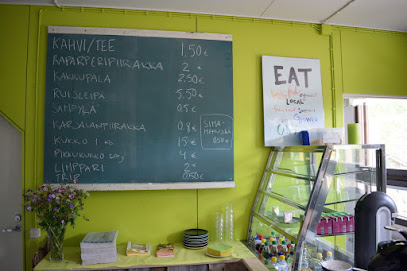 KAHVI/TEE 1.50€
RAPARPERIPIIRAKKA 2€
KAKKUPALA 2.50€
RUISLEIPÄ 5.50€
SÄMPYLÄ 0.5€
KARJALANPIIRAKKA 0.8€
KUKKO 15€
4€
LIMPPARI 2€
TRIP 0.50€
EAT
LOCAL